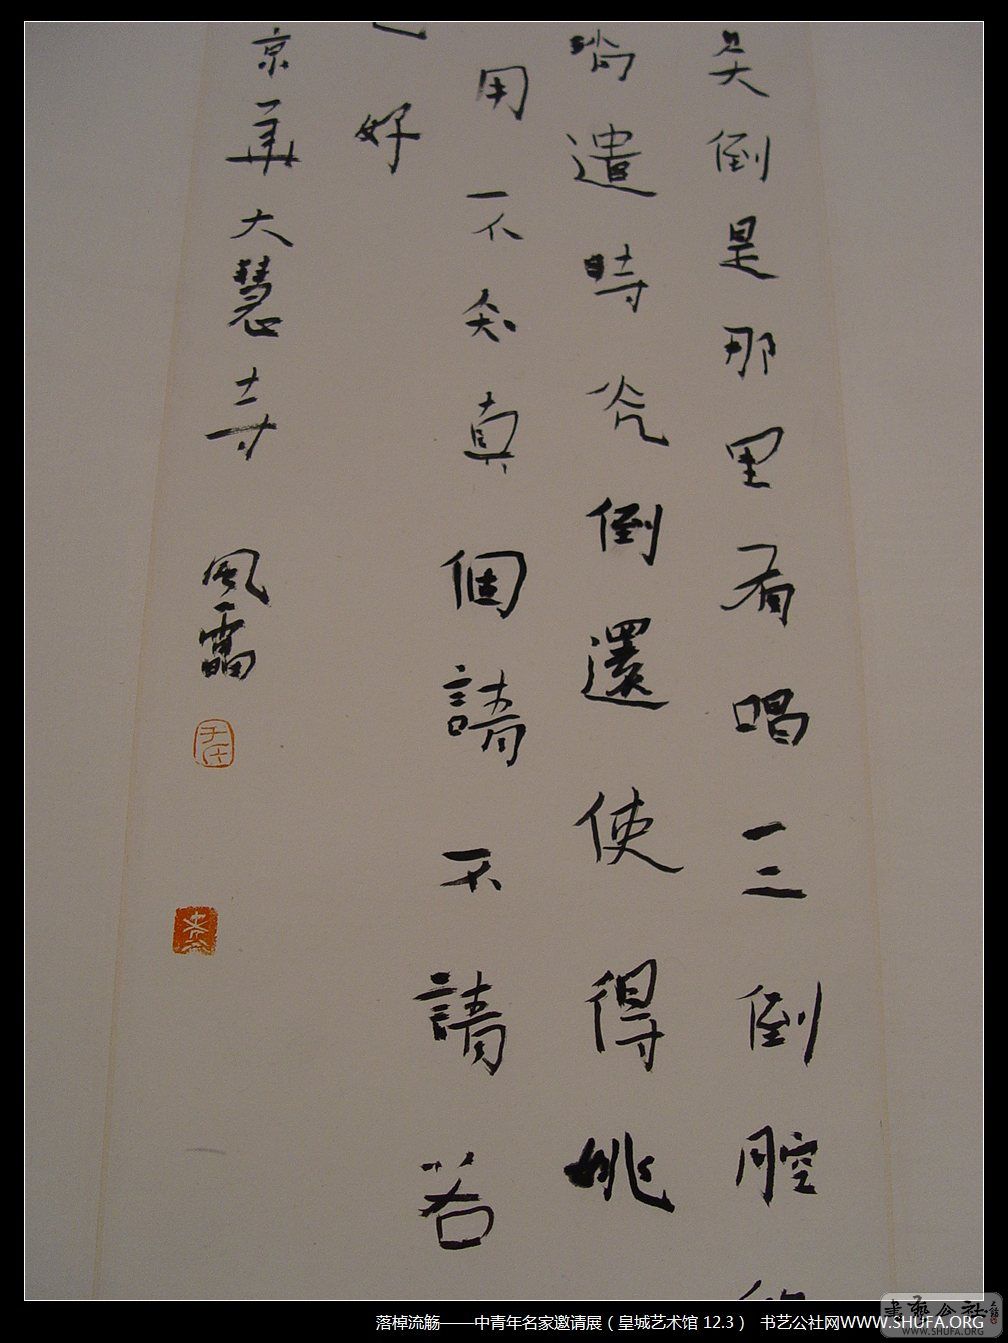 倒是那里看唱三倒腔
遣時光倒還使得姚
用不知真個請不請若
好
京華大慧寺 風雷
于氏
落棹流觞——中青年名家邀请展（皇城艺术馆 12.3） 书艺公社网WWW.SHUFA.ORG
書藝公社
WWW.SHUFA.ORG